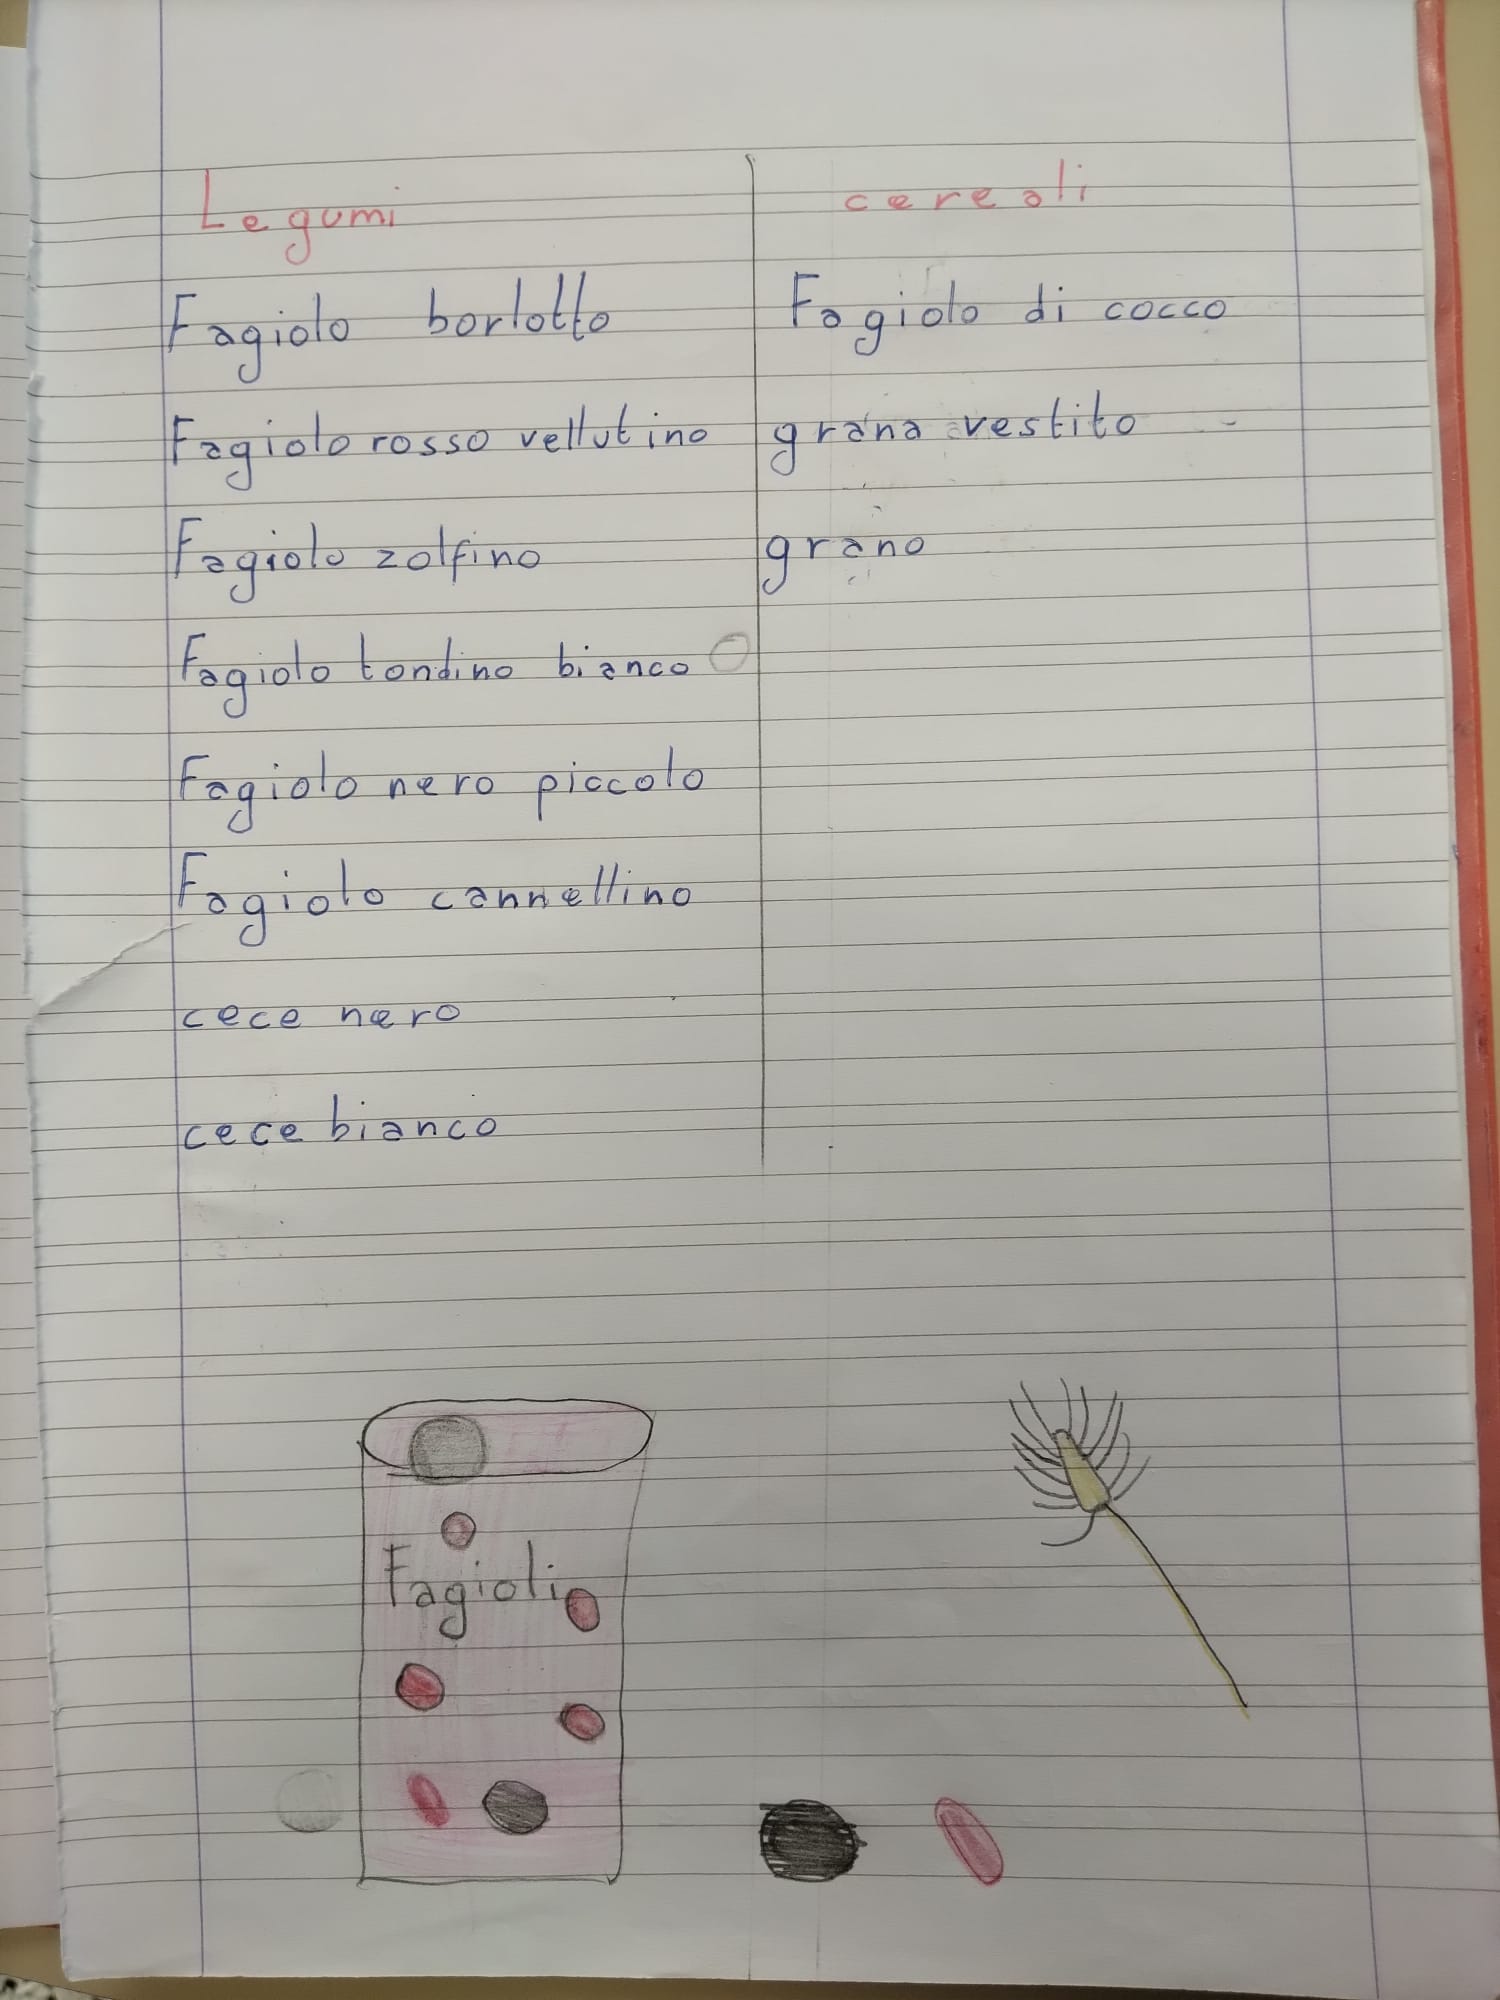 Legumi
cereali
Fagiolo borlotto
Fagiolo di cocco
Fagiolo rosso vellutino
grana vestito
Fagiolo zolfino
grano
Fagiolo tondino bianco
Fagiolo nero piccolo
Fagiolo cannellino
cece nero
cece bianco
Fagioli